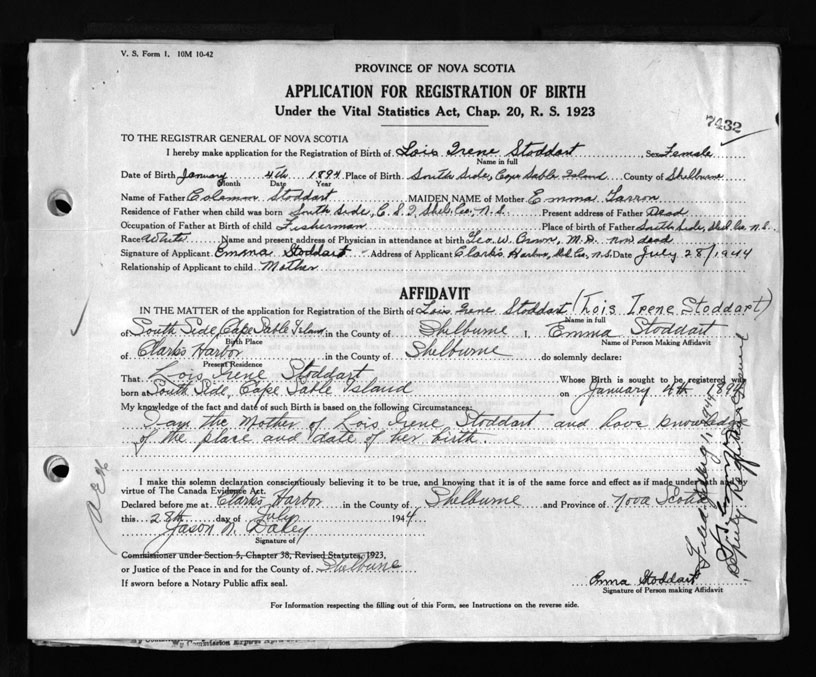 V. S. Form 1, 10M 10-42
PROVINCE OF NOVA SCOTIA
APPLICATION FOR REGISTRATION OF BIRTH
Under the Vital Statistics Act, Chap. 20, R. S. 1923
7432
TO THE REGISTRAR GENERAL OF NOVA SCOTIA
I hereby make application for the Registration of Birth of Lois Irene Stoddart, Sex Female
Name in full
Date of Birth January 4th 1894 Place of Birth South Side, Cape Sable Island County of Shelburne
Month Date Year
Name of Father Coleman Stoddart MAIDEN NAME of Mother Emma
Residence of Father when child was born South Side, C. S. I, Shel. Co., N. S. Present address of Father Dead
Occupation of Father at Birth of child Fisherman Place of birth of Father South Side, Shel. Co. N. S.
Race White Name and present address of Physician in attendance at birth Geo. W. Brown, M.D. now dead
Signature of Applicant Emma Stoddart Address of Applicant Clark's Harbor, Shel. Co., N.S. Date July 28/1944
Relationship of Applicant to child Mother
AFFIDAVIT
IN THE MATTER of the application for Registration of the Birth of Lois Irene Stoddart (Lois Irene Stoddart)
Name in full
of South Side, Cape Sable Island in the County of Shelburne I, Emma Stoddart
Birth Place Name of Person Making Affidavit
of Clark's Harbor in the County of Shelburne do solemnly declare:
Present Residence
That Lois Irene Stoddart Whose Birth is sought to be registered was
born at South Side, Cape Sable Island on January 4th 1894
My knowledge of the fact and date of such Birth is based on the following Circumstances:
I am the Mother of Lois Irene Stoddart and have knowledge
of the place and date of her birth.
I make this solemn declaration conscientiously believing it to be true, and knowing that it is of the same force and effect as if made under oath and by
virtue of The Canada Evidence Act.
Declared before me at Clark's Harbor in the County of Shelburne and Province of Nova Scotia
this 28th day of July 1944
Jason N.
Signature of
Commissioner under Section 5, Chapter 38, Revised Statutes, 1923,
or Justice of the Peace in and for the County of Shelburne
If sworn before a Notary Public affix seal.
Emma Stoddart
Signature of Person making Affidavit
For Information respecting the filling out of this Form, see Instructions on the reverse side.
Filed Aug 1, 1944
Deputy Registrar General
My Commission Expires